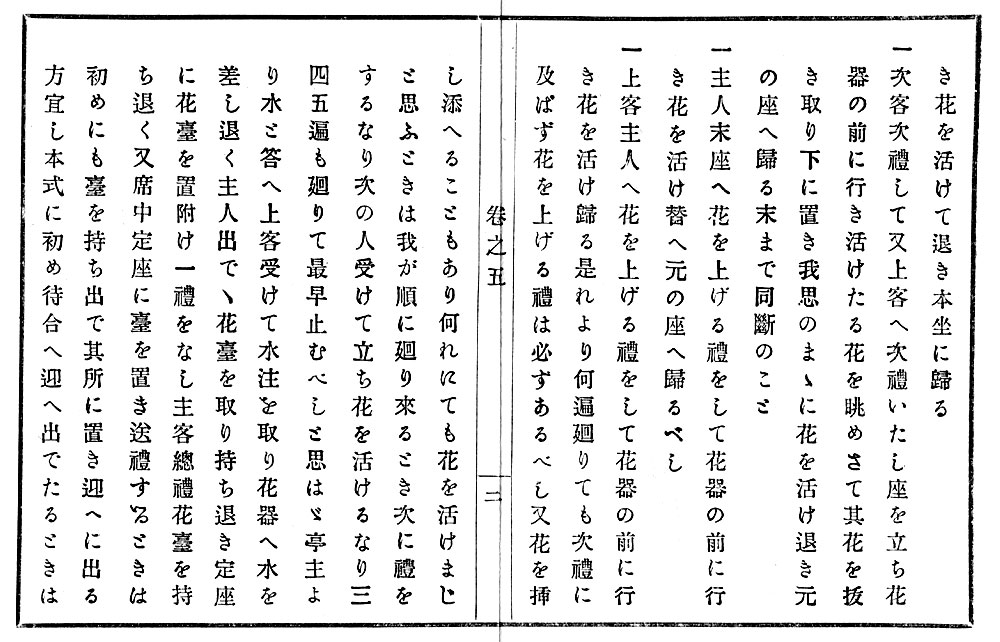 き花を活けて退き本坐に歸る
一次客次禮して又上客へ次禮いたし座を立ち花
器の前に行き活けたる花を眺めさて其花を拔
き取り下に置き我思のまゝに花を活け退き元
の座へ歸る末まで同斷のこと
一主人末座へ花を上げる禮をして花器の前に行
き花を活け替へ元の座へ歸るべし
一上客主人へ花を上げる禮をして花器の前に行
き花を活け歸る是れより何遍廻りても次禮に
及ばず花を上げる禮は必ずあるべし又花を挿
卷之五
二
し添へることもあり何れにても花を活けまじ
と思ふときは我が順に廻り來るとき次に禮を
するなり次の人受けて立ち花を活けるなり三
四五遍も廻りて最早止むべしと思はゞ亭主よ
り水と答へ上客受けて水注を取り花器へ水を
差し退く主人出でゝ花臺を取り持ち退き定座
に花臺を置附け一禮をなし主客總禮花臺を持
ち退く又席中定座に臺を置き送禮するときは
初めにも臺を持ち出で其所に置き迎へに出る
方宜し本式に初め待合へ迎へ出でたるときは